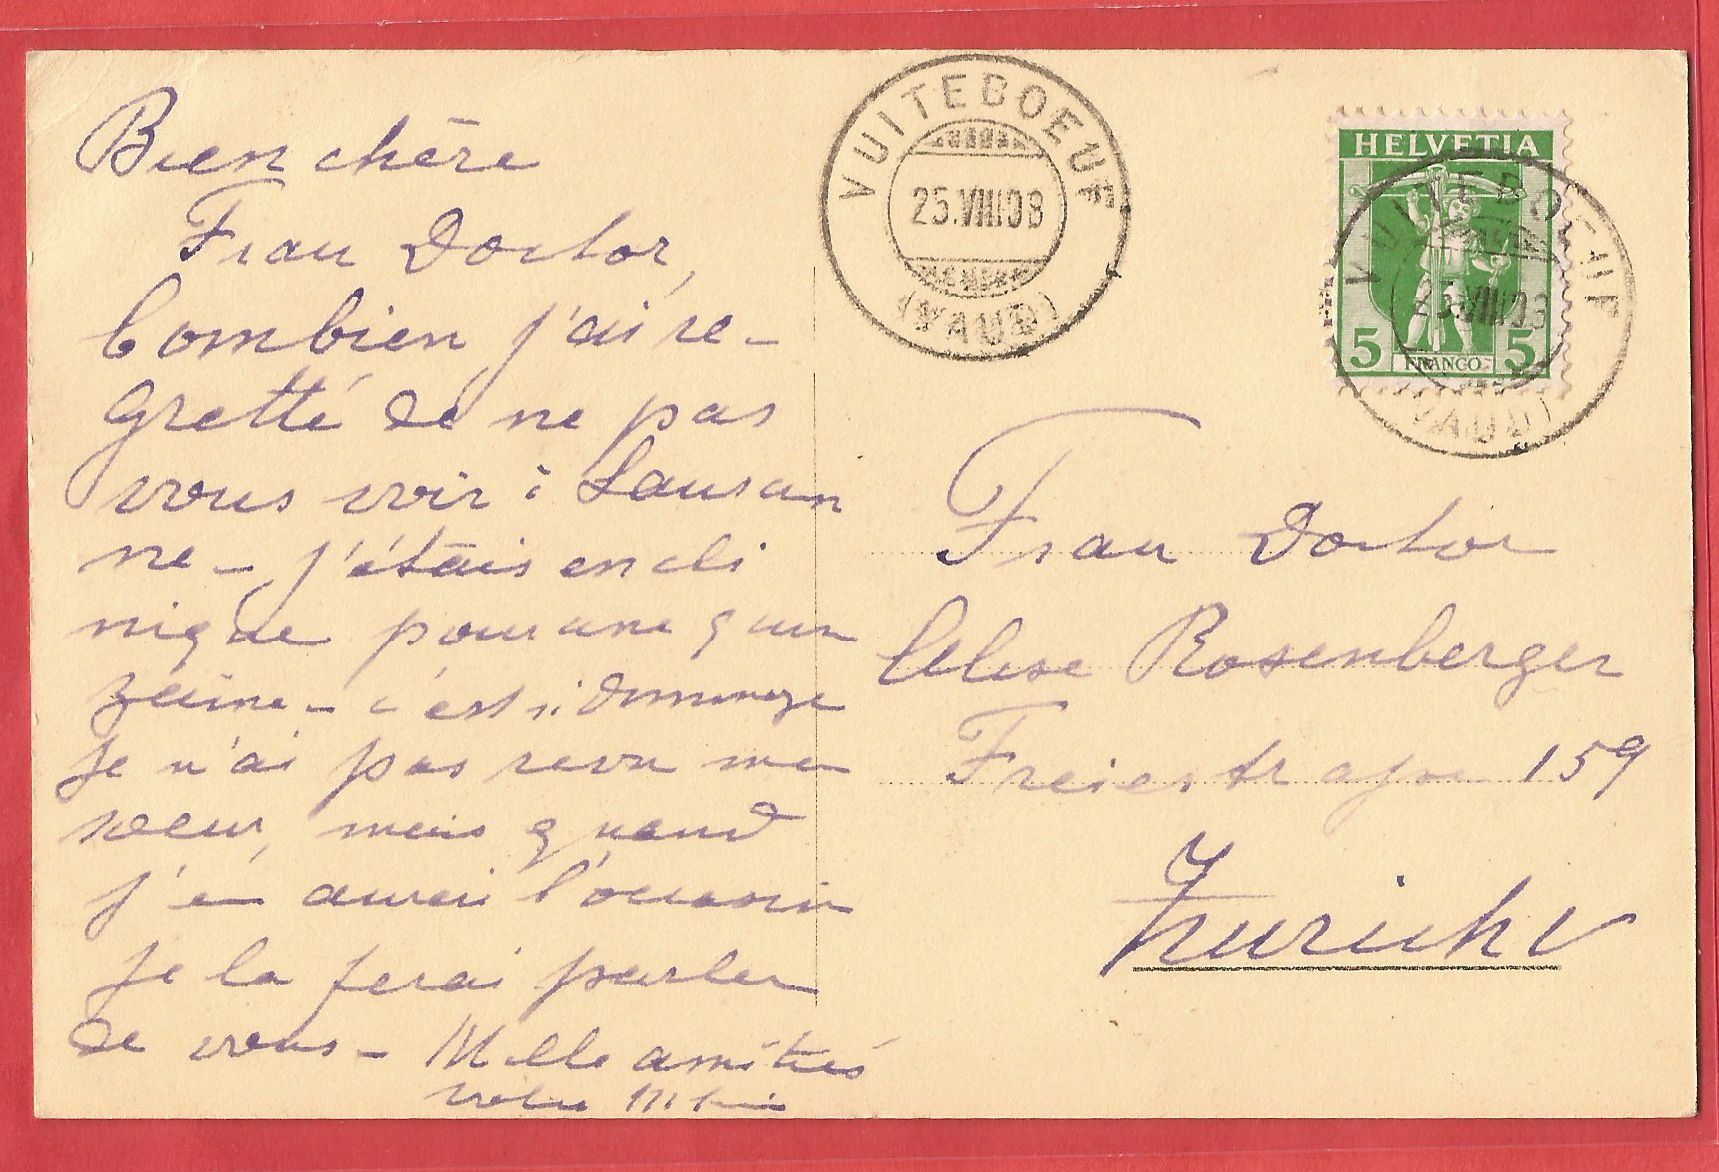 Bien chère
Frau Doctor,
Combien j'ai re-
gretté de ne pas
vous voir à Lausan
ne - j'étais en cli
nique pour une quin
zaine - c'est si dommage
Je n'ai pas revu ma
soeur, mais quand
j'en aurai l'occasion
je la ferai parler
de vous - Mille amitiés
votre
VUITEBOEUF
25.VIII.08
(VAUD)
HELVETIA
5 FRANCO 5
VUITEBOEUF
25.VIII.08
(VAUD)
Frau Doctor
Rosenberger
Freiestrasse 159
Zurich V